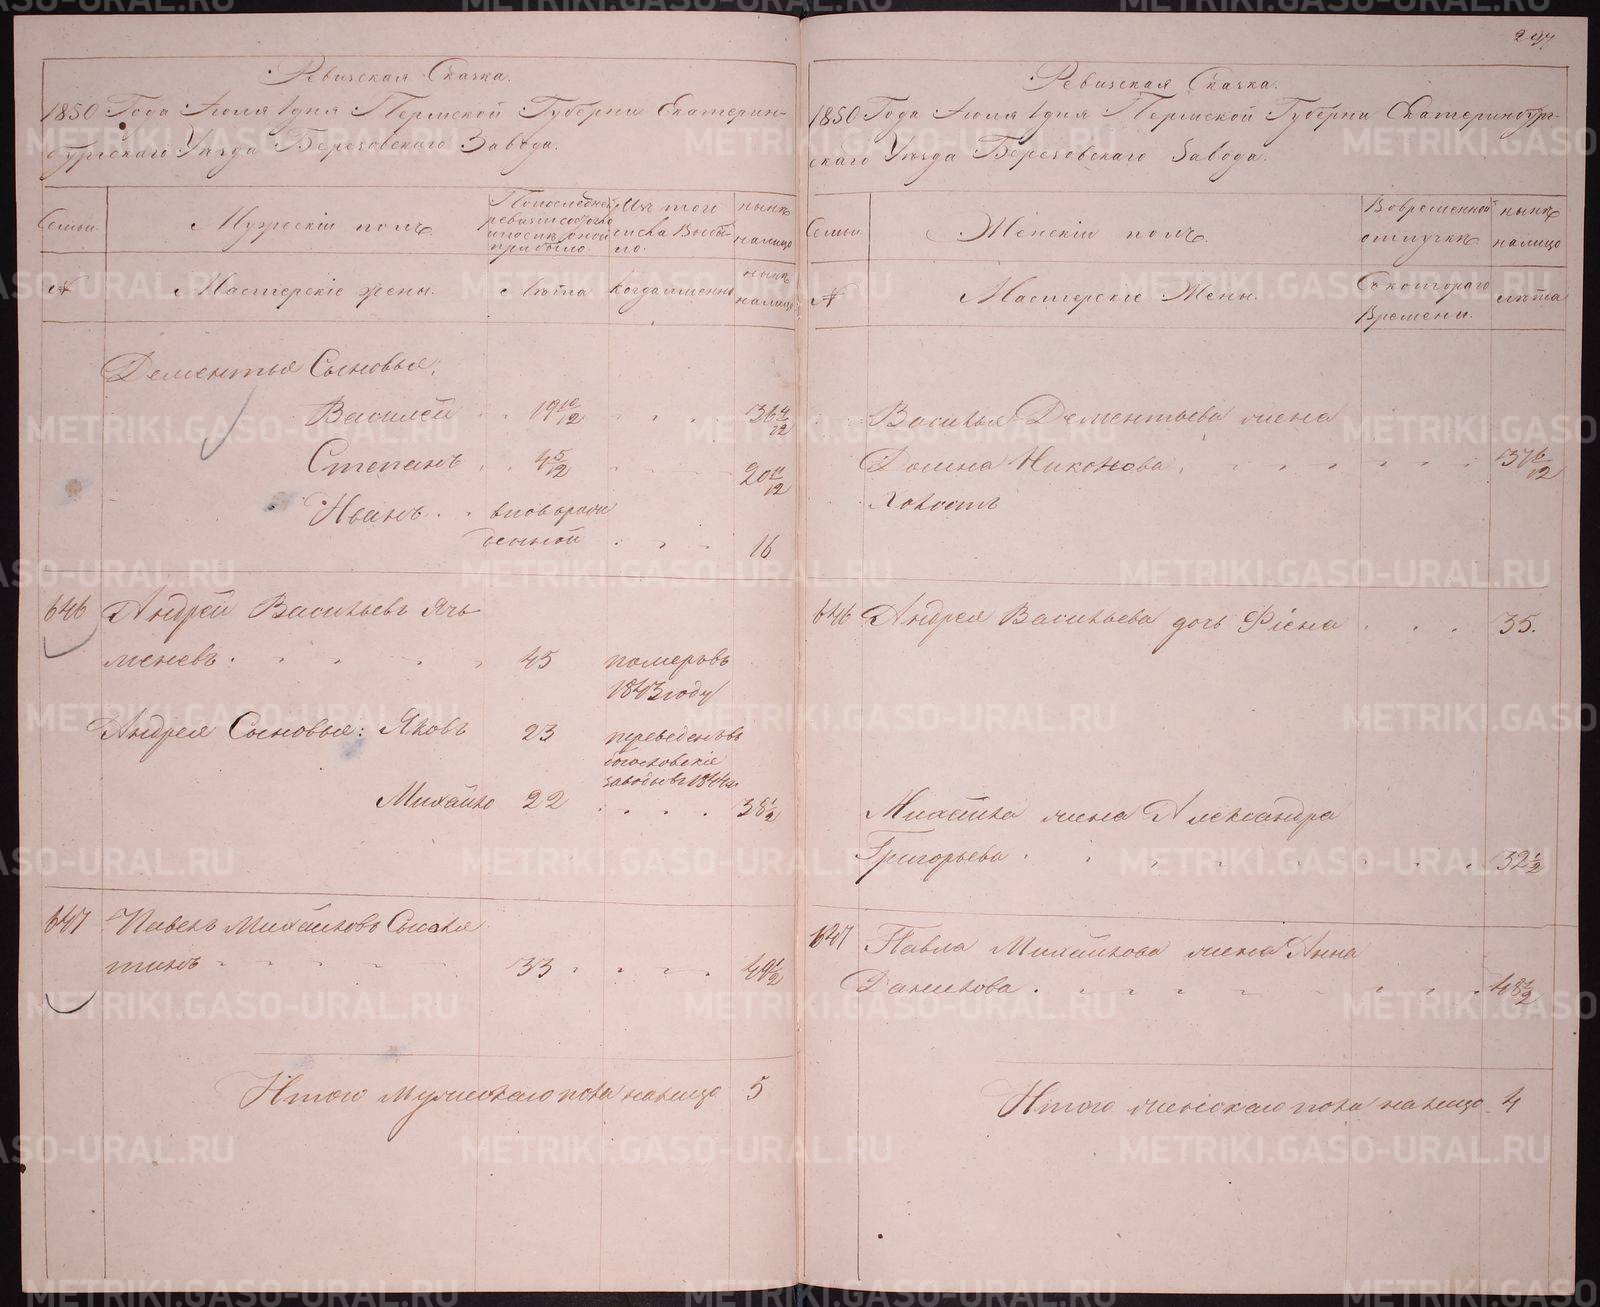 Ревизская Сказка.
1850 Года Июля 1 дня Пермской Губерни Екатерин-
бургскаго Уѣзда Березовскаго Завода.
Семьи
Мужескій полъ.
По последней
ревизи состояло
и после оной
прибыло.
Изъ того
числа выбы-
ло.
нынѣ
налицо
№
Мастерскіе жены.
Лѣта
Когда именно
нынѣ
налицо
Дементья Сыновья:
Василей 19 10/12 36 4/12
Степанъ 4 5/12 20 11/12
Иванъ вновь рож
денной 16
646 Андрей Васильевъ Яч
меневъ 45 померъ въ
1843 году
Андрея Сыновья: Яковъ 23 переведенъ въ
богословскіе
заводы въ 1844 г.
Михайло 22 38 1/2
647 Павелъ Михайловъ
33 49 1/2
Итого мужескаго пола налицо 5
297
Ревизская Сказка.
1850 Года Июля 1 дня Пермской Губерни Екатеринбург-
скаго Уѣзда Березовскаго Завода.
Семьи
Женскій полъ.
Во временной
отлучкѣ
нынѣ
налицо
№
Мастерскіе Жены.
Съ котораго
Времени.
лѣта
Василья Дементьева жена
Домна Никонова 37 6/12
Холостъ
646 Андрея Васильева дочь Фіена 35.
Михайла жена Александра
Григорьева 32 1/2
647 Павла Михайлова жена Анна
Данилова 48 1/2
Итого женскаго пола налицо 4
METRIKI.GASO-URAL.RU